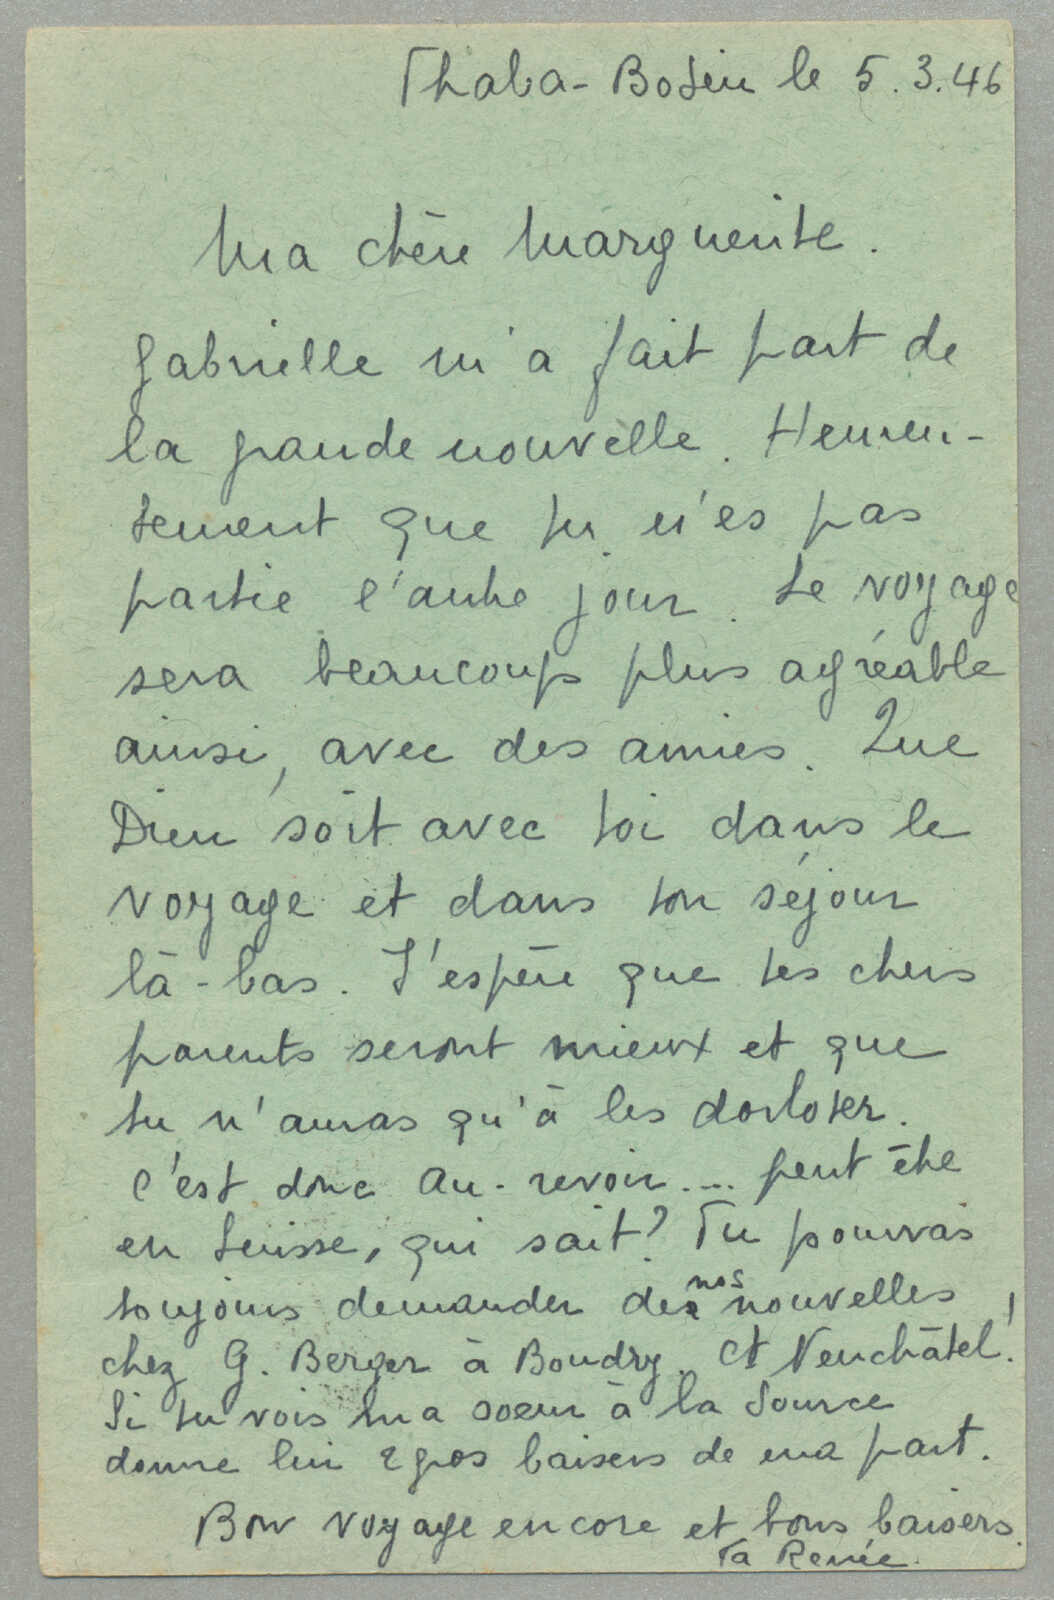 Thaba-Bosiu le 5.3.46
Ma chère Marguerite.
Gabrielle m'a fait part de
la grande nouvelle. Heureu-
sement que tu n'es pas
partie l'autre jour. Le voyage
sera beaucoup plus agréable
ainsi, avec des amies. Que
Dieu soit avec toi dans le
voyage et dans ton séjour
là-bas. J'espère que tes chers
parents seront mieux et que
tu n'auras qu'à les dorloter.
C'est donc au-revoir.... peut être
en Suisse, qui sait? Tu pourras
toujours demander de nos nouvelles
chez G. Berger à Boudry. Ct Neuchâtel!
Si tu vois ma soeur à la Source
donne lui 2 gros baisers de ma part.
Bon voyage encore et bons baisers.
Ta Renée.